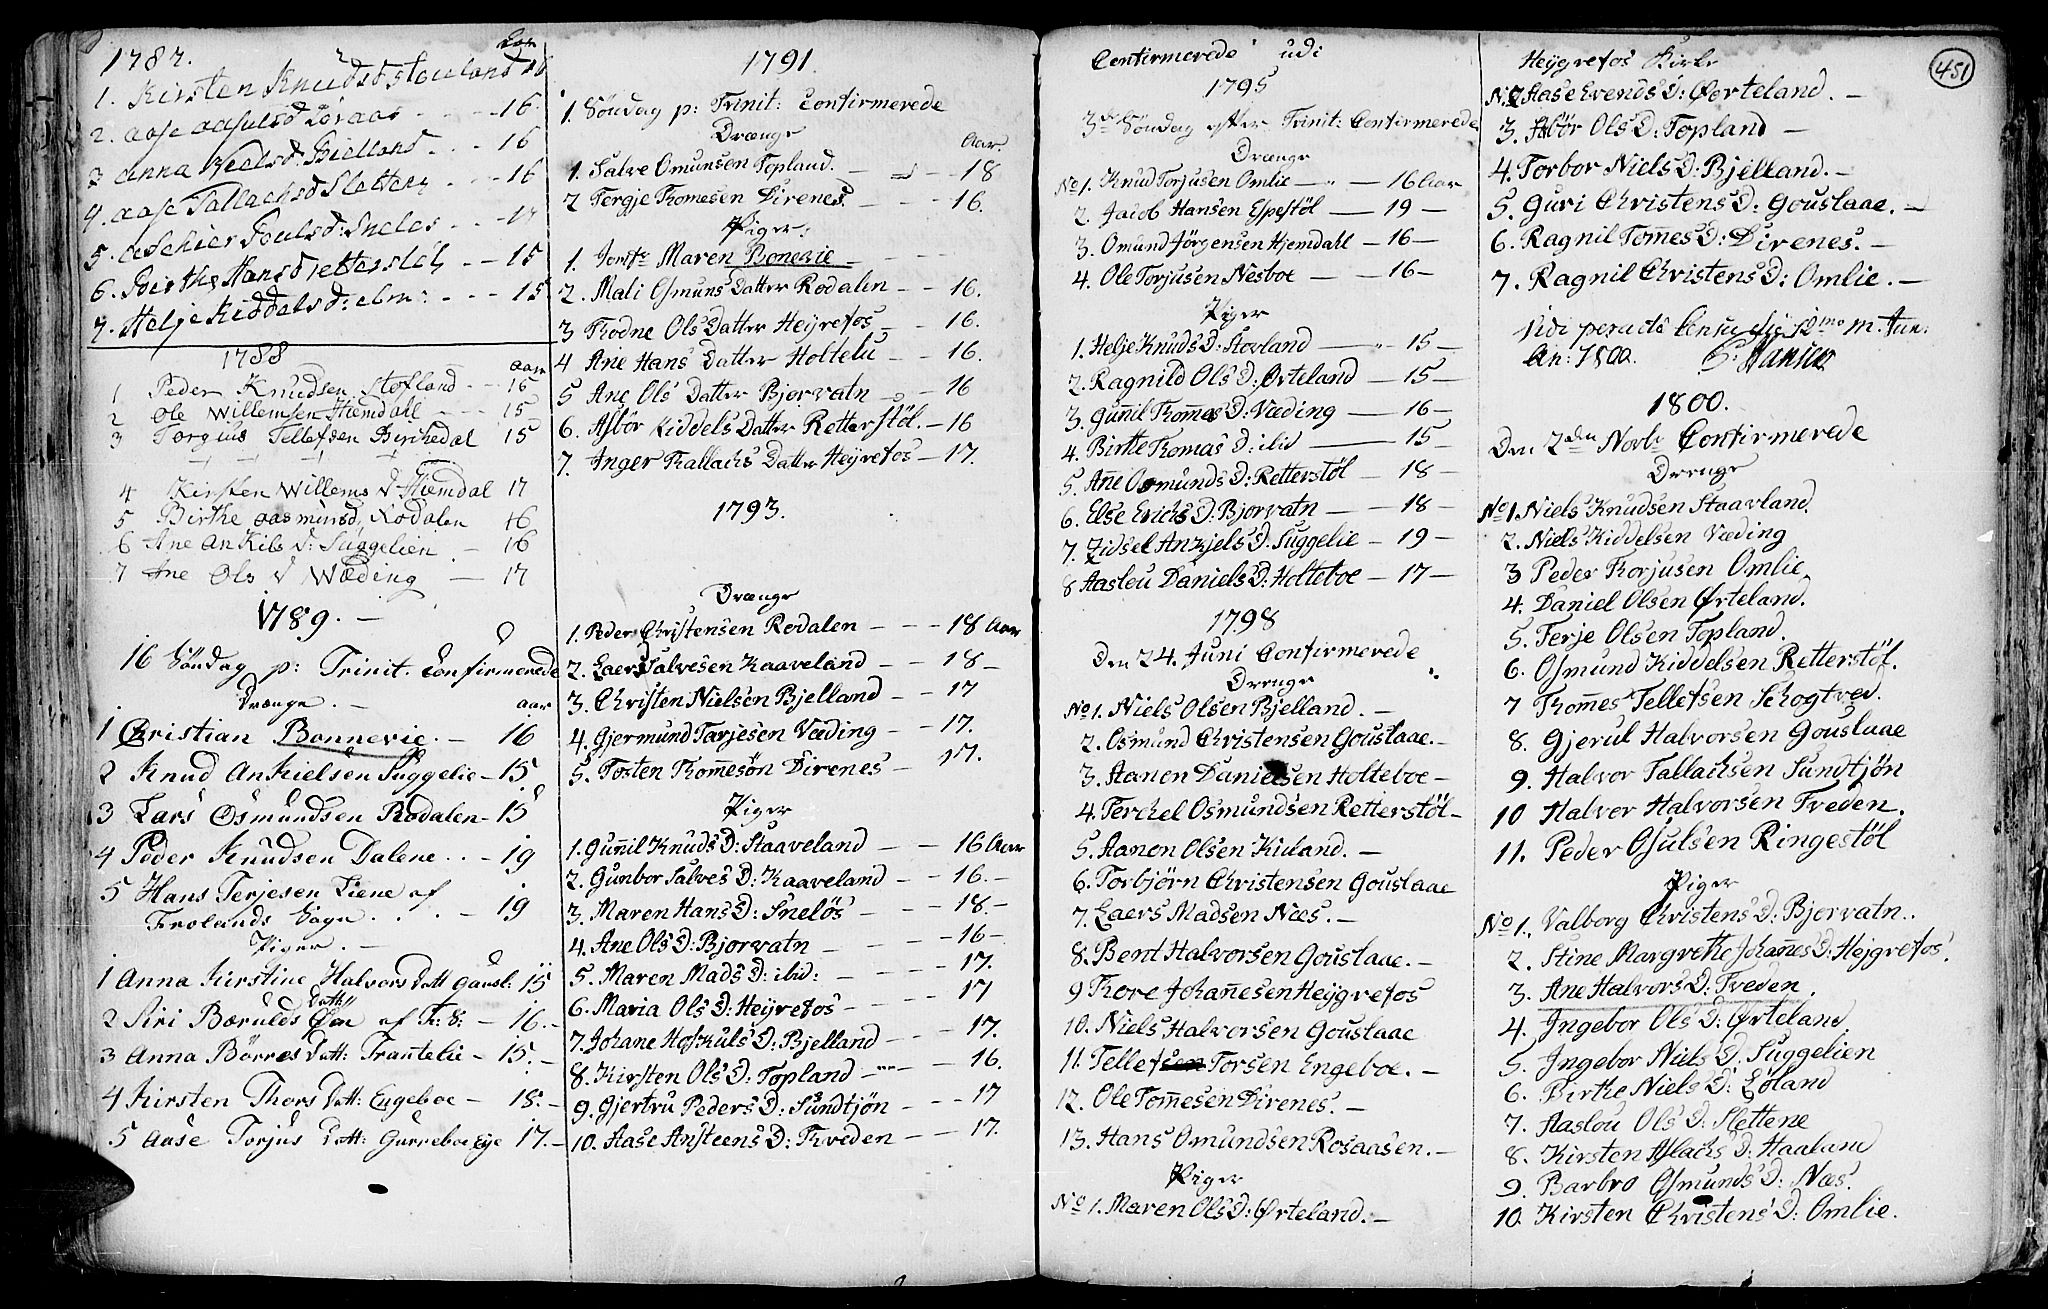 1787.
Aar
1. Kirsten Knudsd Stauland 16
2. Aase Aasulsd Løvaas - - - - 16.
3 Anna Neelsd: Bielland. - - 16
4. Aase Tallachsd Sletten - - - 16
5. Poulsd: Sneløs - - 17
6. Birthe Hansd Retterstöl - - 15
7. Helje Kiddelsd: - - - 15
1788
Aar
1 Peder Knudsen Stofland - - 15
2 Ole Willemsen Hiemdahl - - - 15
3 Torgius Tellefsen Birkedal 15
4 Kirsten Willems d Hiemdal 17
5 Birthe Aasmunsd, Rodalen 16
6 Ane Ankils d: Suggelien - 16
7 Ane Ols d Wæding - 17
1789. -
16 Söndag p: Trinit. Confirmerede
Drænge. - aar
1 Christian Bonnevie. - 16
2 Knud Ankielsen Suggelie - 15
3 Lars Osmundsen Rodalen - 15
4 Peder Knudsen Dalene . . - 19
5 Hans Terjesen Liene af
Frolands Sogn . . . - 19
Piger. -
1 Anna Kirstine Halvors Datt Gausl: 15
2 Siri Bærulds Datt af Fr: S: - 16. -
3 Anna Börres Datt: Trantelie - 15. -
4 Kirsten Thors Datt: Engeboe - 18. -
5 Aase Torjus Datt: Gurreboe Eje 17. -
1791.
1 Söndag p: Trinit: Confirmerede
Drænge
Aar.
1. Salve Omunsen Topland. - - - 18
2 Tergje Thomesen Direnes. - - - 16.
Piger.
1. Jomfr Maren Bonevie - - - -
2. Mali Osmuns Datter Rodalen - - 16.
3 Thodne Ols Datter Heyrefos - - 16.
4 Ane Hans Datter Holtelu - - 16.
5 Ane Ols Datter Bjorvatn - - 16
6. Asbör Kiddels Datter Retterstöl. - 16
7. Inger Thallachs Datter Heyrefos - 17.
1793.
Drænge
1. Peder Christensen Rodalen - - - 18 Aar
2. Laers Salvesen Kaaveland - - 18 -
3. Christen Nielsen Bjelland - - 17
4. Gjermund Tarjesen Væding - - 17.
5. Tosten Thomesøn Direnes - 17.
Piger
1. Gunnil Knuds D: Staaveland - - 16 Aar
2. Gunbor Salves D: Kaaveland - - 16. -
3. Maren Hans D: Sneløs - - - 18. -
4. Ane Ols D: Bjorvatn - - - - 16 -
5. Maren Mads D: ibid: - - - - 17.
6. Maria Ols D: Heyrefos - - - 17
7. Johane Hoskuls D: Bjelland - - 17.
8. Kirsten Ols D: Topland - - - 16.
9. Gjertru Peders D: Sundtjön - - - 17
10. Aase Ansteens D: Thveden - - 17.
Confirmerede udi
1795
3de Söndag efter Trinit: Confirmerede
Drænge
No 1. Knud Torjusen Omlie - " - 16 Aar
2. Jacob Hansen Espestöl - 19 -
3. Omund Jörgensen Hjemdahl - 16 -
4. Ole Torjusen Nesboe - 16 -
Piger
1. Helje Knuds D: Stovland - " 15 -
2. Ragnild Ols D: Ørteland - 15 -
3. Gunnil Thommes D: Væding - 16 -
4. Birthe Thomas D: ibid - 15 -
5. Ane Osmunds D: Retterstöl - 18 -
6. Else Erichs D: Bjorvatn - - 18 -
7. Zidsel Ankjels D. Suggelie - 19 -
8 Aaslou Daniels D: Holteboe - 17 -
1798
Den 24. Juni Confirmerede
Drenge
No 1. Niels Olsen Bjelland. -
2. Osmund Christensen Gouslaae. -
3. Aanon Danielsen Holteboe -
4. Terchel Osmundsen Retterstöl -
5. Aanon Olsen Kieland. -
6. Torbjörn Christensen Gouslaae
7. Laers Madsen Næs. -
8. Bent Halvorsen Gouslaae. -
9 Thore Johannesen Heygrefos
10. Niels Halvorsen Gouslaae
11. Tellef Torsen Engeboe. -
12. Ole Tommesen Direnes. -
13. Hans Omundsen Rosaasen. -
Piger
No 1. Maren Ols D: Ørteland. -
Heygrefos Kirke
451
No 2 Aase Evends D: Ørteland. -
3. Asbör Ols D: Topland -
4. Torbor Niels D: Bjelland. -
5. Guri Christens D: Gouslaae. -
6. Ragnil Tommes D: Direnes. -
7. Ragnil Christens D: Omlie. -
Vidi peracta Censu die 12mo m. Jun:
An: 1800. Hansen
1800.
Den 2den Novbr Confirmerede
Drenge
No 1. Niels Knudsen Staavland.
2. Niels Kiddelsen Væding
3 Peder Thorjusen Omlie
4. Daniel Olsen Ørteland.
5. Terje Olsen Topland.
6. Osmund Kiddelsen Retterstöl.
7 Thommes Tellefsen Schogtved.
8. Gjerul Halvorsen Gouslaae
9. Halvor Tallachsen Sundtjön
10 Halvor Halvorsen Treden.
11. Peder Osulsen Ringestöl
Piger
No 1. Valborg Christens D: Bjorvatn.
2. Stine Margrethe Johannes D: Hejgrefos.
3. Ane Halvors D: Treden.
4. Ingebor Ols D: Ørteland.
5. Ingebor Niels D. Suggelien
6. Birthe Niels D: Löland
7. Aaslou Ols D: Slettene
8. Kirsten D: Haaland
9. Barbro Osmunds D: Næs.
10. Kirsten Christens D: Omlie.